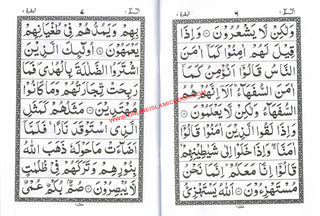 الٓمّٓ ١
٦
البقرة ٢
وَلٰكِنْ لَّا يَشْعُرُوْنَ ۝ وَاِذَا
قِيْلَ لَهُمْ اٰمِنُوْا كَمَآ اٰمَنَ
النَّاسُ قَالُوْٓا اَنُؤْمِنُ كَمَآ
اٰمَنَ السُّفَهَآءُ ؕ اَلَآ اِنَّهُمْ هُمُ
السُّفَهَآءُ وَلٰكِنْ لَّا يَعْلَمُوْنَ ۝
وَاِذَا لَقُوا الَّذِيْنَ اٰمَنُوْا قَالُوْٓا
اٰمَنَّا ۖۚ وَاِذَا خَلَوْا اِلٰى شَيٰطِيْنِهِمْ
قَالُوْٓا اِنَّا مَعَكُمْ ۙ اِنَّمَا نَحْنُ
مُسْتَهْزِءُوْنَ ۝ اَللّٰهُ يَسْتَهْزِئُ
الٓمّٓ ١
٧
البقرة ٢
بِهِمْ وَيَمُدُّهُمْ فِيْ طُغْيَانِهِمْ
يَعْمَهُوْنَ ۝ اُولٰٓئِكَ الَّذِيْنَ
اشْتَرَوُا الضَّلٰلَةَ بِالْهُدٰى ۪ فَمَا
رَبِحَتْ تِّجَارَتُهُمْ وَمَا كَانُوْا
مُهْتَدِيْنَ ۝ مَثَلُهُمْ كَمَثَلِ
الَّذِى اسْتَوْقَدَ نَارًا ۚ فَلَمَّآ
اَضَآءَتْ مَا حَوْلَهٗ ذَهَبَ اللّٰهُ
بِنُوْرِهِمْ وَتَرَكَهُمْ فِيْ ظُلُمٰتٍ
لَّا يُبْصِرُوْنَ ۝ صُمٌّۢ بُكْمٌ عُمْيٌ